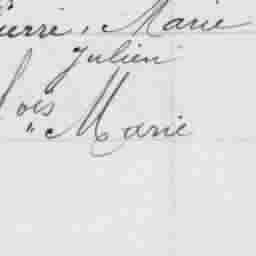 Pierre, Marie
Julien
" Marie